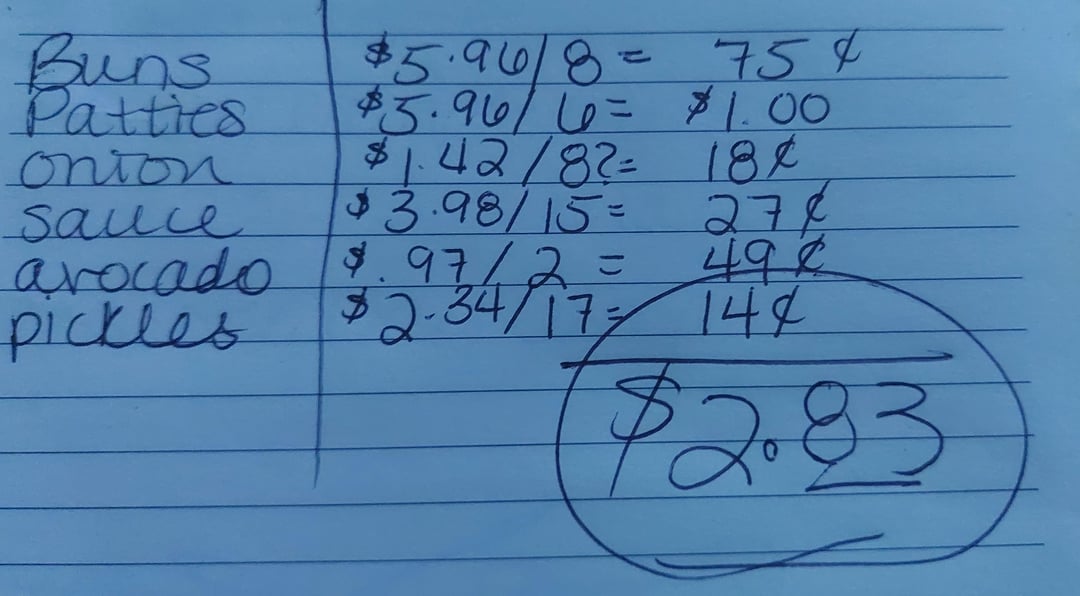 Buns $5.96/8 = 75¢
Patties $5.96/6= $1.00
onion $1.42/8?= 18¢
sauce $3.98/15= 27¢
avocado $.97/2 = 49¢
pickles $2.34/17= 14¢
$2.83